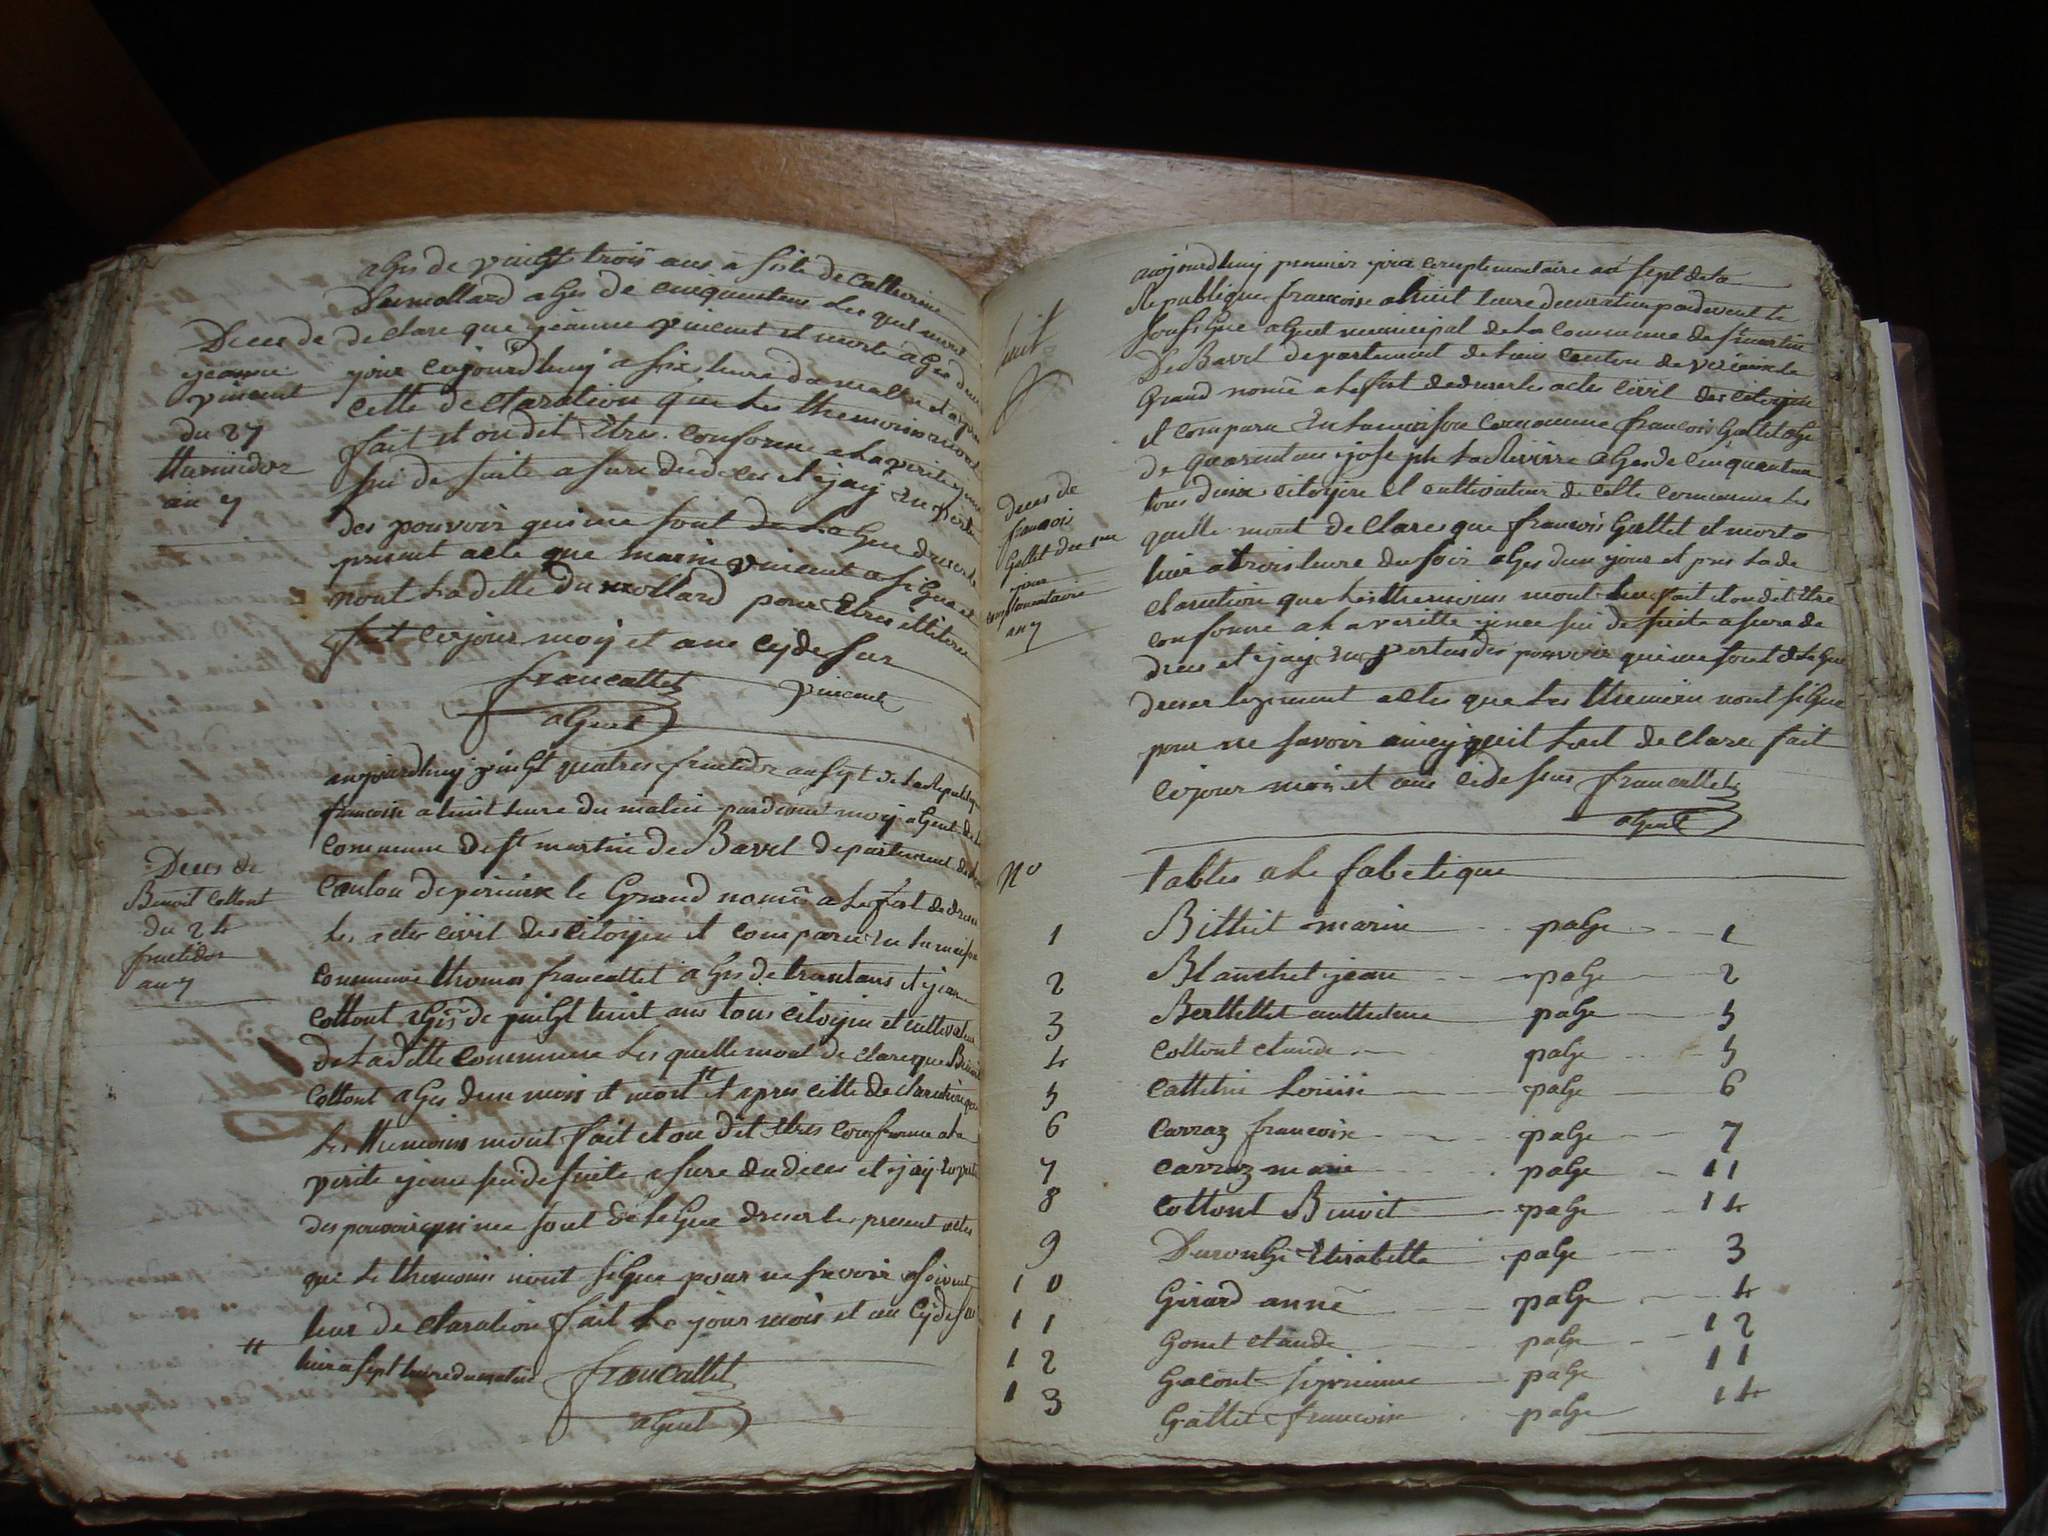 ages de vingt trois ans a fiste de Catherine
Dumollard ages de cinquantens les quel mont
declare que jeanne vincent et morte ages dun
jour cejourdhuy a six heure du matin et apres
cette declaration que les themoins mont
fait et on dit Etres conforme a la verite je me
sui de suite asure dudeces et jay en vertu
des pouvoir qui me sont delegue dresser le
present acte que marin vincent a signe et
nont laditte Dumollard pour Etres illiteree
fait cejour moy et ans cydesus
francallet vincent
agent
Deces de
jeanne
vincent
du 27
thermidor
an 7
aujourdhuy vingt quatres fructidor an sept de la Republique
francoise a huit heure du matin pardevant moy agent de la
commune de st martin de Bavel departement de
canton de virieux le Grand nomē a le fet de dresser
les acte civil des citoyen et comparu en la maison
commune thomas francallet ages de trentans et jean
cottont ages de vingt huit ans tous citoyen et cultivateur
de laditte commune les quelle mont declare que Benoit
cottont ages dun mois et mort # et apres cette declaration que
les themoins mont fait et on dit etres conforme a la
verite je me sui de suite asure dudeces et jay en vertu
des pouvoir qui me sont delegue dresser le present actes
que le themoins nont signe pour ne savoir
leur declaration fait le jour mois et an cydesus
# hier a sept heure du matin francallet
agent
Deces de
Benoit cottont
du 24
fructidor
an 7
aujourdhuy premier jour complemantaire an sept de la
Republique francoise a huit heure du matin pardevent le
sousigne agent municipal de la commune de st martin
De Bavel departement de lain canton de virieux le
Grand nomē a le fet dedresser le actes civil des citoyen
et comparu en la maison commune francois Gallet age
de quarentans joseph Lariviere ages de cinquantan
tous deux citoyen et cultivateur de cette commune les
quelle mont declares que francois Gallet et mort
hier a trois heure du soir ages dun jour et pres la de
claration que les themoins mont fait et on dit Etre
conforme a la veritte je me sui de suite asure de
deces et jay en vertus des pouvoir qui me sont delegue
dreser le present actes que les themoin nont signe
pour ne savoir ainsy quil lont declare fait
cejour mois et ans cidesus francallet
agent
huit
deces de
francois
Gallet du 1er
jour
complementaire
an 7
No tables alefabetique
1 Bittet marin page 1
2 Blanchet jean page 2
3 Berthellet anthelme page 5
4 cottont claude page 5
5 cattelin Louise page 6
6 carraz francoise page 7
7 carraz marie page 11
8 cottont Benoit page 14
9 Duronge Elisabette page 3
10 Girard annē page 4
11 Gonet claude page 12
12 Gacont page 11
13 Gallet francois page 14